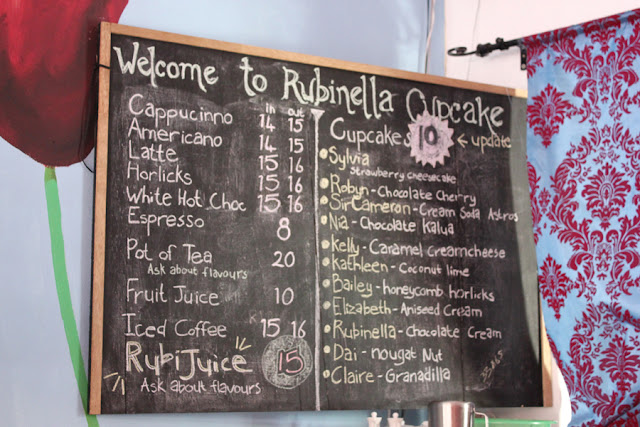 Welcome to Rubinella Cupcake
in out
Cappucinno 14 15
Americano 14 15
Latte 15 16
Horlicks 15 16
White Hot Choc 15 16
Espresso 8
Pot of Tea 20
Ask about flavours
Fruit Juice 10
Iced Coffee 15 16
RubiJuice 15
Ask about flavours
Cupcakes 10 ← update
Sylvia
Strawberry cheesecake
Robyn - Chocolate Cherry
Sir Cameron - Cream Soda Astros
Nia - Chocolate kalua
Kelly - Caramel Creamcheese
Kathleen - Coconut lime
Bailey - honeycomb horlicks
Elizabeth - Aniseed Cream
Rubinella - Chocolate Cream
Dai - nougat Nut
Claire - Granadilla